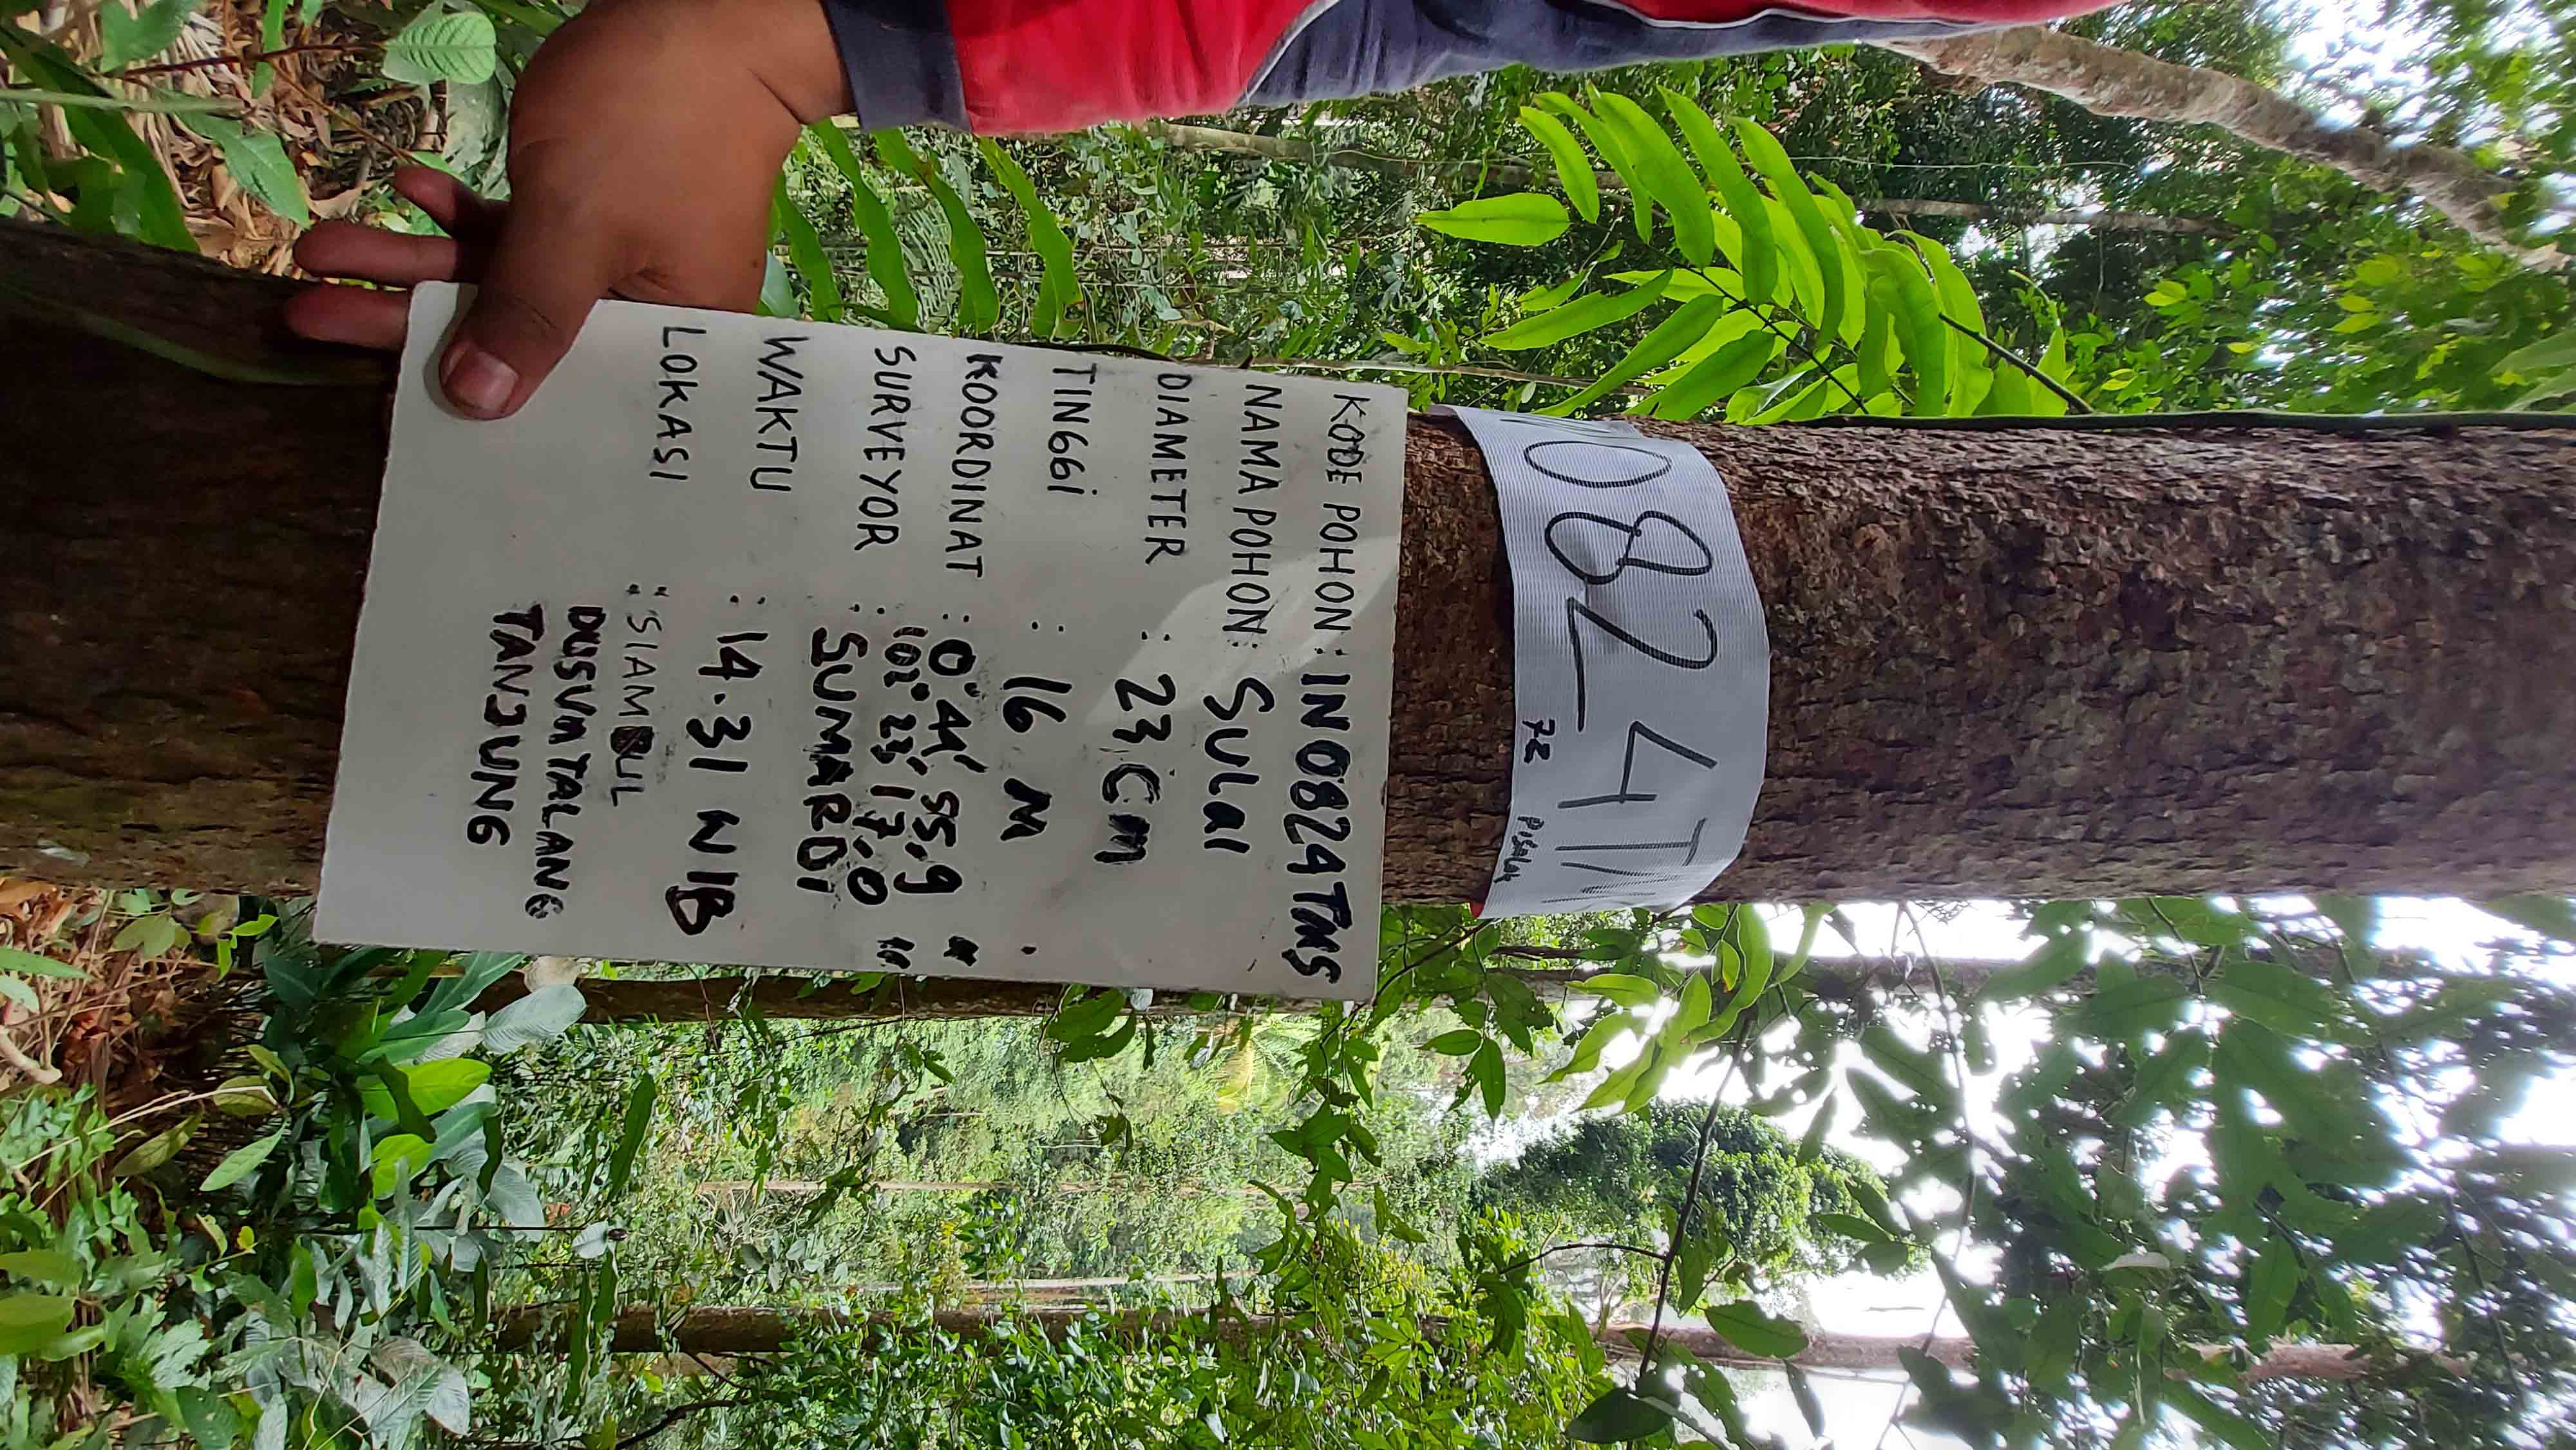 0824TM
72 Pisalak
KODE POHON : IN0824TMS
NAMA POHON : Sulai
DIAMETER : 23 Cm
TINGGi : 16 M
KOORDINAT : 0° 44' 55,9
102° 23' 17,0
SURVEYOR : SUMARDi
WAKTU : 14.31 WIB
LOKASI : SIAMBUL
DUSUN TALANG
TANJUNG